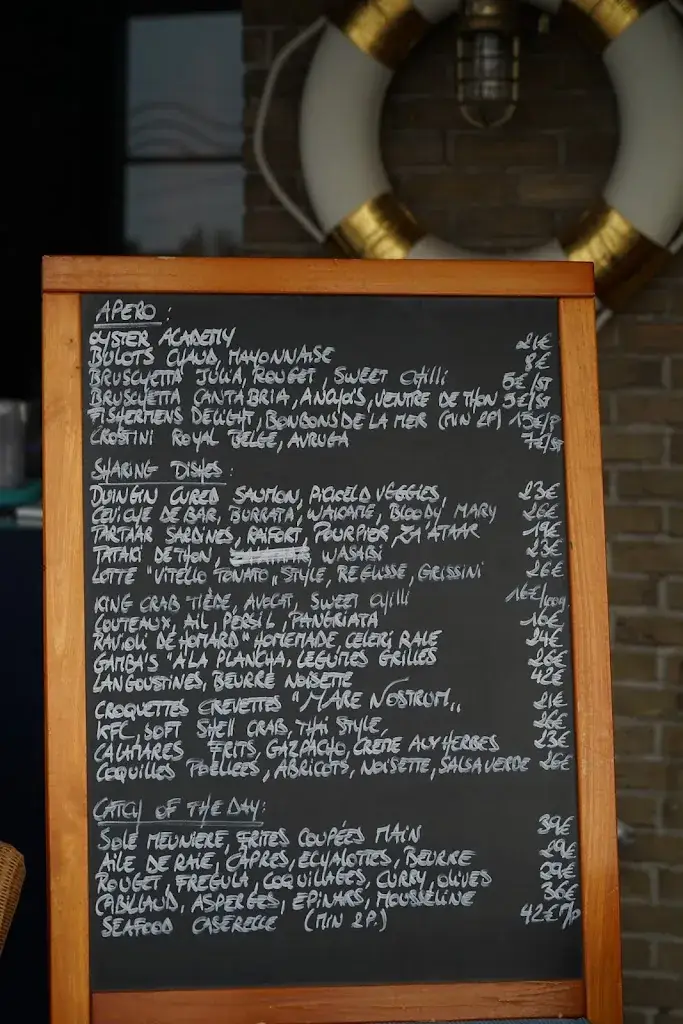 APERO :
OYSTER ACADEMY 21€
BULOTS CHAUD, MAYONNAISE 8€
BRUSCHETTA JULIA, ROUGET, SWEET CHILLI 5€/ST
BRUSCHETTA CANTABRIA, ANCHOIS, VENTRE DE THON 5€/ST
FISHERMENS DELIGHT, BONBONS DE LA MER (MIN 2P) 15€/P
CROSTINI ROYAL BELGE, AVRUGA 7€/ST
SHARING DISHES :
CURED SAUMON, PICKELD VEGGIES, 23€
CEVICHE DE BAR, BURRATA, WAKAME, BLOODY MARY 26€
TARTAAR SARDINES, RAIFORT, POURPIER, ZA'ATAAR 19€
TATAKI DE THON, WASABI 23€
LOTTE "VITELLO TONATO" STYLE, REGLISSE, GRISSINI 26€
KING CRAB TIÈDE, AVOCAT, SWEET CHILLI 16€/100g
COUTEAUX, AIL, PERSIL, PANGRIATA 16€
RAVIOLI DE HOMARD "HOMEMADE CELERI RAVE 24€
GAMBA'S "A LA PLANCHA, LEGUMES GRILLÉS 26€
LANGOUSTINES, BEURRE NOISETTE 42€
CROQUETTES CREVETTES "MARE NOSTRUM" 21€
KFC, SOFT SHELL CRAB, THAI STYLE, 26€
CALAMARES FRITS, GAZPACHO, CRÈME AUX HERBES 23€
COQUILLES POÊLEES, ABRICOTS, NOISETTE, SALSA VERDE 26€
CATCH OF THE DAY:
SOLE MEUNIÈRE, FRITES COUPÉES MAIN 39€
AILE DE RAIE, CÂPRES, ECHALOTTES, BEURRE 29€
ROUGET, FREGULA, COQUILLAGES, CURRY, OLIVES 29€
CABILLAUD, ASPERGES, EPINARS, MOUSSELINE 36€
SEAFOOD CASERELLE (MIN 2P.) 42€/P